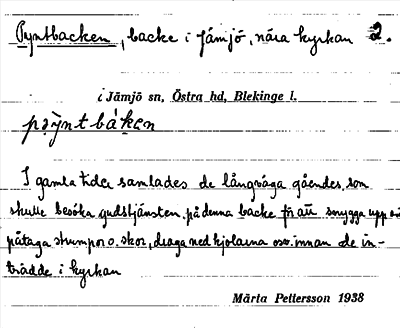 Pyntbacken, backe i Jämjö, nära kyrkan 2.
i Jämjö sn, Östra hd, Blekinge l.
I gamla tider samlades de långväga gåendes, som
skulle besöka gudstjänsten, på denna backe för att snygga upp sig
påtaga strumpor o. skor, draga ned kjolarna osv. innan de in-
trädde i kyrkan
Märta Pettersson 1938